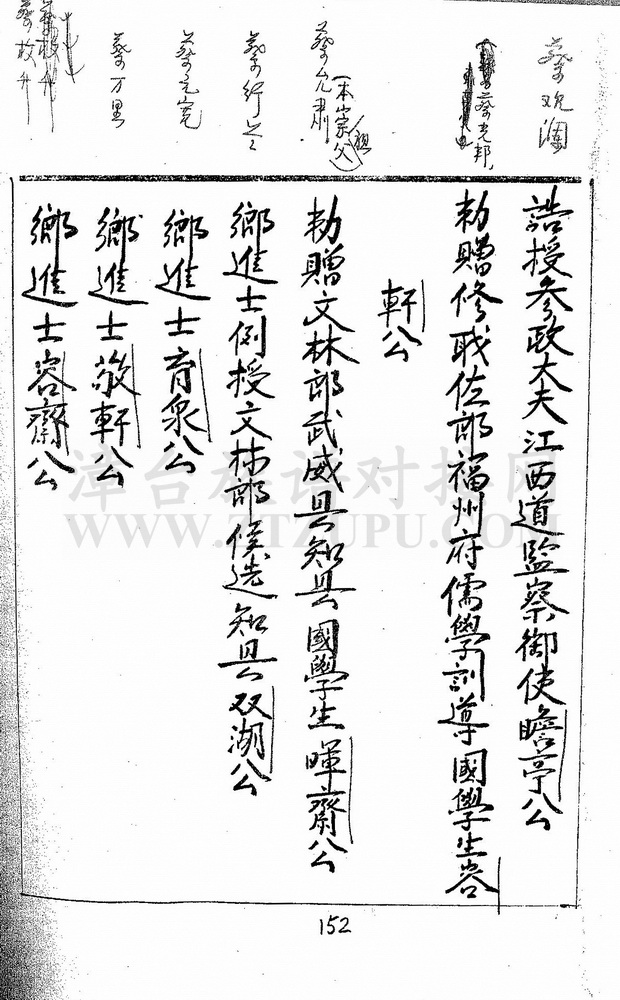 蔡观澜
蔡光邦
蔡允肃
(本崇父)祖
蔡行之
蔡元宽
蔡万里
蔡枚升
誥授参政大夫江西道監察御使瞻亭公
勅贈修职佐郎福州府儒學訓導國學生容
軒公
勅贈文林郎武威县知县國學生暉齋公
鄉進士例授文林郎候选知县双湖公
鄉進士育泉公
鄉進士敬軒公
鄉進士容齋公
津台族谱对接网
WWW.JTZUPU.COM
152